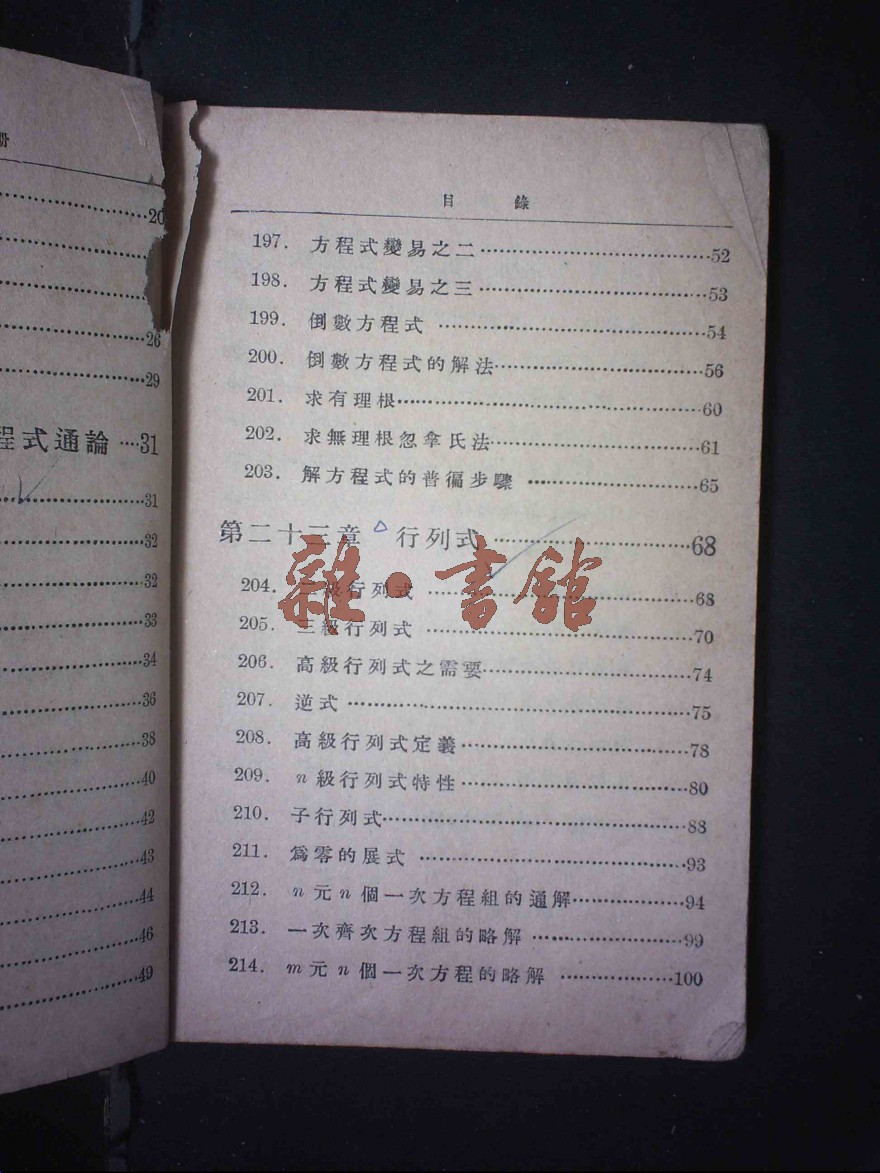 册
20
26
29
程式通論 ····31
31
32
32
33
34
36
38
40
42
43
44
46
49
目 錄
197. 方程式變易之二 ··········52
198. 方程式變易之三 ··········53
199. 倒數方程式 ··········54
200. 倒數方程式的解法 ··········56
201. 求有理根 ··········60
202. 求無理根忽拿氏法 ··········61
203. 解方程式的普徧步驟 ··········65
第二十三章 行列式 ··········68
204. 二級行列式 ··········68
205. 三級行列式 ··········70
206. 高級行列式之需要 ··········74
207. 逆式 ··········75
208. 高級行列式定義 ··········78
209. n 級行列式特性 ··········80
210. 子行列式 ··········88
211. 爲零的展式 ··········93
212. n 元 n 個一次方程組的通解 ··········94
213. 一次齊次方程組的略解 ··········99
214. m 元 n 個一次方程的略解 ··········100
雜·書館